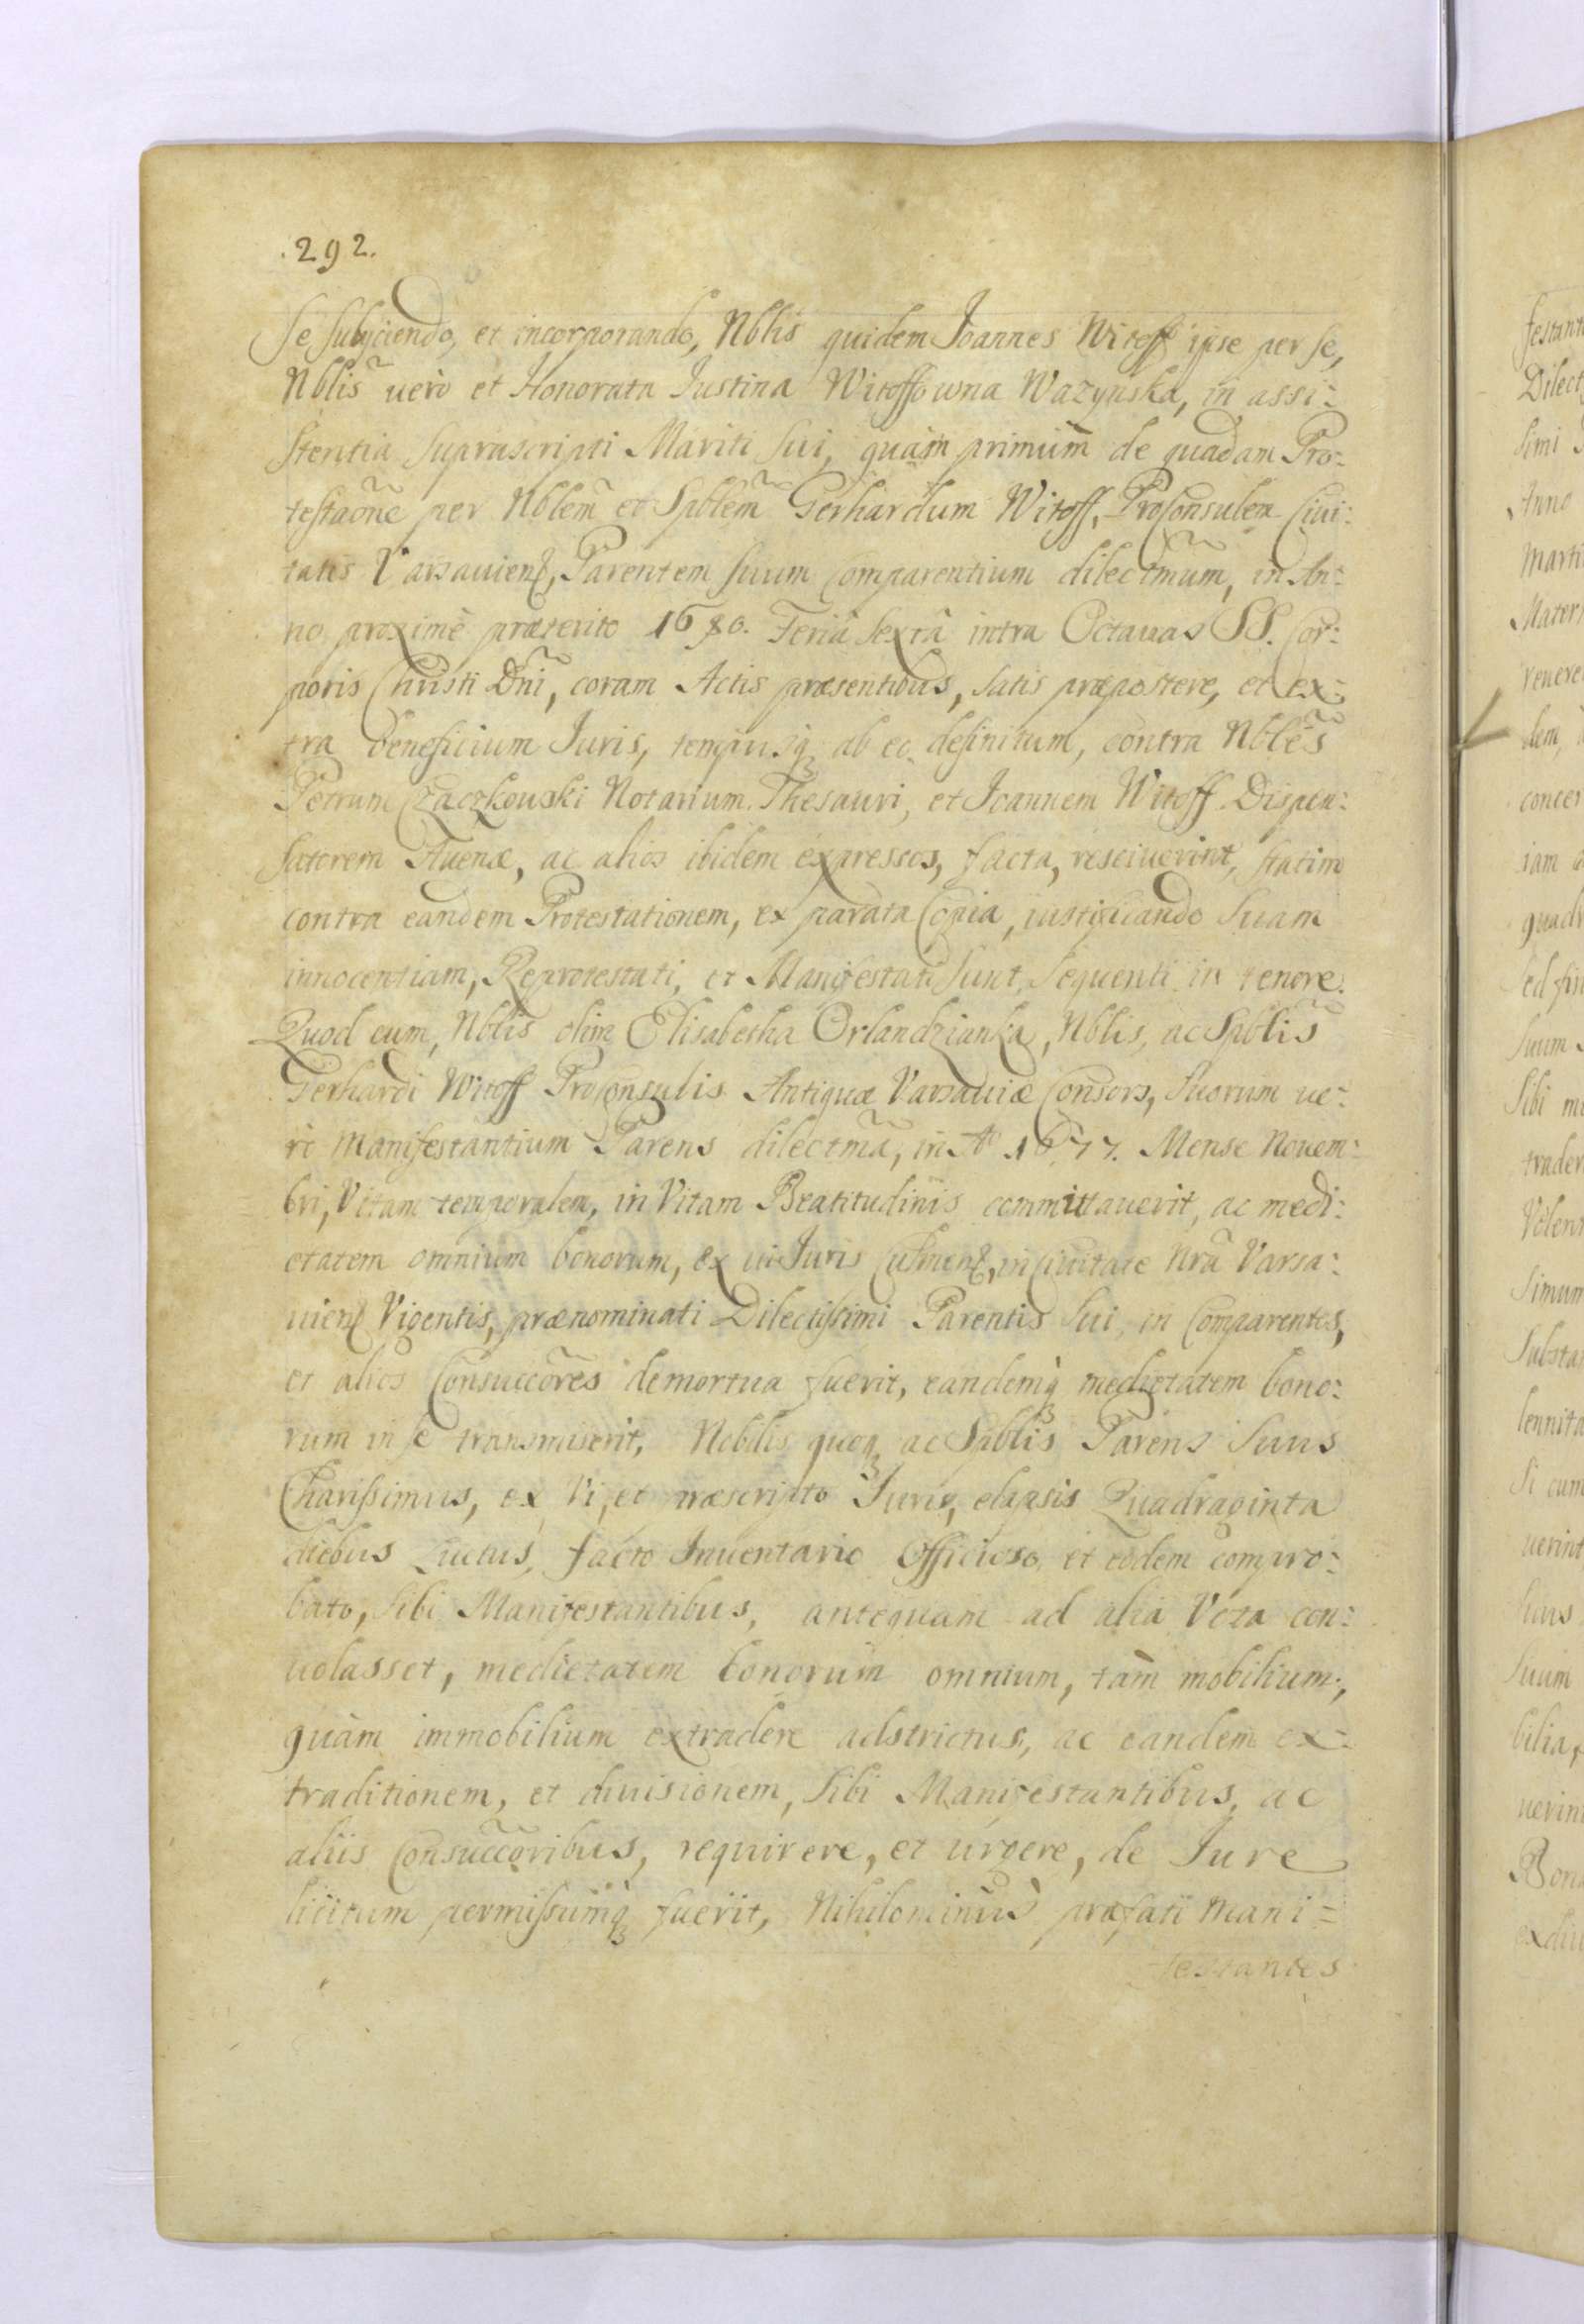 .292.
se subijciendo, et incorporando, Nblis quidem Joannes Witoff ipse per se,
Nblis̃ uerò et Honorata Iustina Witoffowna Wazynska, in assi:
stentia suprascripti Mariti sui, quàm primùm de quadam Pro:
testaõne per Nblem̃ et Spblem̃ Gerhardum Witoff, Proconsulem Ciui:
tatis Varsauienß, Parentem suum Comparentium dilectm̃um, in An:
no proximè præterito 1680. Feriâ sextâ intra Octauas SS. Cor:
poris Christi Dni̅, coram Actis præsentibus, satis præpostere, et ex:
tra beneficium Iuris, tempusq₃ ab eo definitum, contra Nblẽs
Petrum Czaczkowski Notarium Thesauri, et Joannem Witoff Dispen:
satorem Auenæ, ac alios ibidem expressos, facta, resciuerint, statim
contra eandem Protestationem, ex parata Copia, iustificando suam
innocentiam, Reprotestati, et Manifestati sunt, sequenti in tenore.
Quod cum, Nblis olim Elisabetha Orlandzianka, Nblis, ac Spblis̃
Gerhardi Witoff Proconsulis Antiquæ Varsauiæ Consors, suorum ue:
rò Manifestantium Parens dilectm̃a, in Aº 1677. Mense Nouem:
bri, Vitam temporalem, in Vitam Beatitudinis commutauerit, ac medi:
etatem omnium bonorum, ex ui Iuris Culmenß, in Ciuitate nrã Varsa:
uienß Vigentis, prænominati Dilectissimi Parentis sui, in Comparentes,
et alios Consuccõres demortua fuerit, eandemq₃ medietatem bono:
rum in se transmiserit, Nobilis quoq₃ ac Spblis̃ Parens suus
Charissimus, ex Vi, et præscripto Iuris, elapsis Quadraginta
diebus Luctus, facto Inuentario Officioso, et eodem compro:
bato, sibi Manifestantibus, antequam ad alia Vota con:
uolasset, medietatem bonorum omnium, tàm mobilium,
quàm immobilium extradere adstrictus, ac eandem ex:
traditionem, et diuisionem, sibi Manifestantibus, ac
aliis Consuccõribus, requirere, et urgere, de Iure
licitum permissumq₃ fuerit, Nihilominùs præfati Mani=
festantes